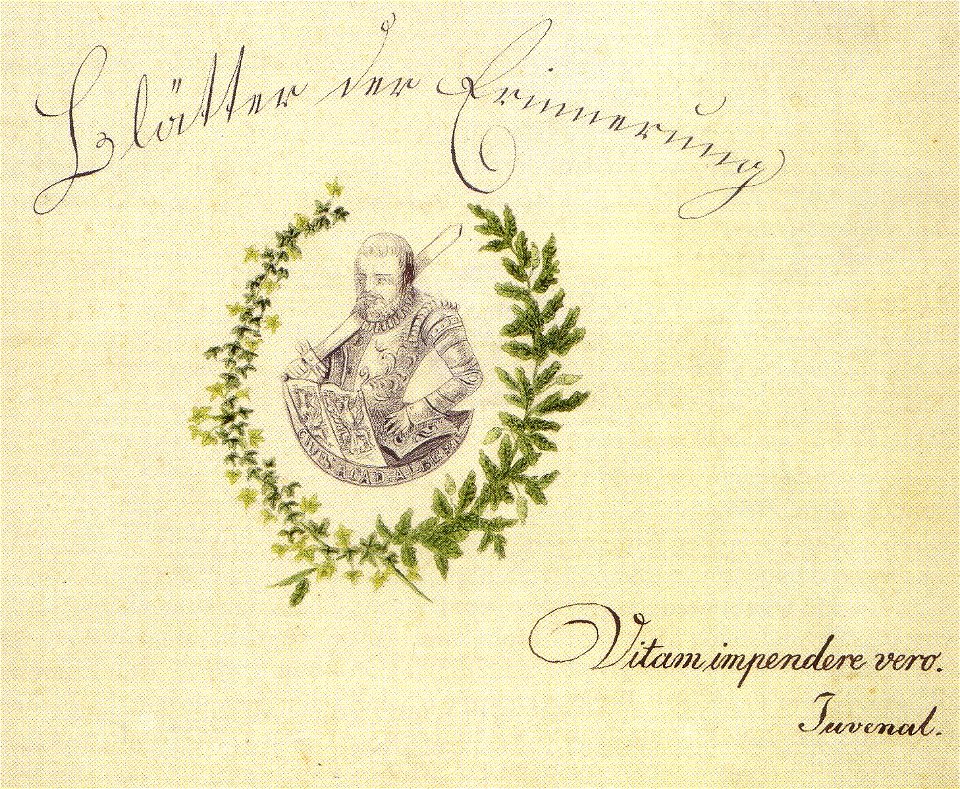 Blätter der Erinnerung
Vitam impendere vero.
Juvenal.